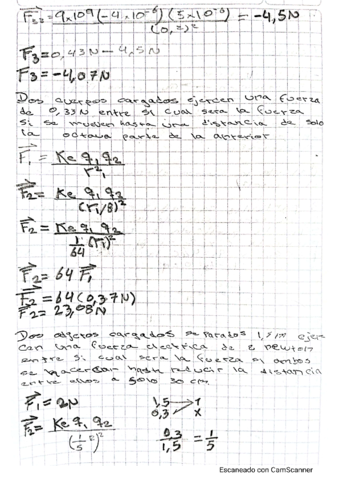 F₃₂ = 9x10⁹ (-4x10⁻⁶)(5x10⁻⁶) = -4,5N
(0,2)²
F₃ = 0,43N - 4,5N
F₃ = -4,07N
Dos cuerpos cargados ejercen una fuerza
de N entre si cual sera la fuerza
si se mueven hasta una distancia de solo
la octava parte de la anterior
F₁ = Ke q₁ q₂
r²₁
F₂ = Ke q₁ q₂
(r₁/8)²
F₂ = Ke q₁ q₂
1/64 (r₁)²
F₂ = 64 F₁
F₂ = 64 (0,37N)
F₂ = 23,08N
Dos objetos cargados separados 1,5m ejer-
cen una fuerza electrica de 2 newton
entre si cual sera la fuerza si ambos
se hacercan hasta reducir la distancia
entre ellos a solo 30 cm.
F₁ = 2N
1,5 → 1
0,3 x
F₂ = Ke q₁ q₂
0,3/1,5 = 1/5
Escaneado con CamScanner